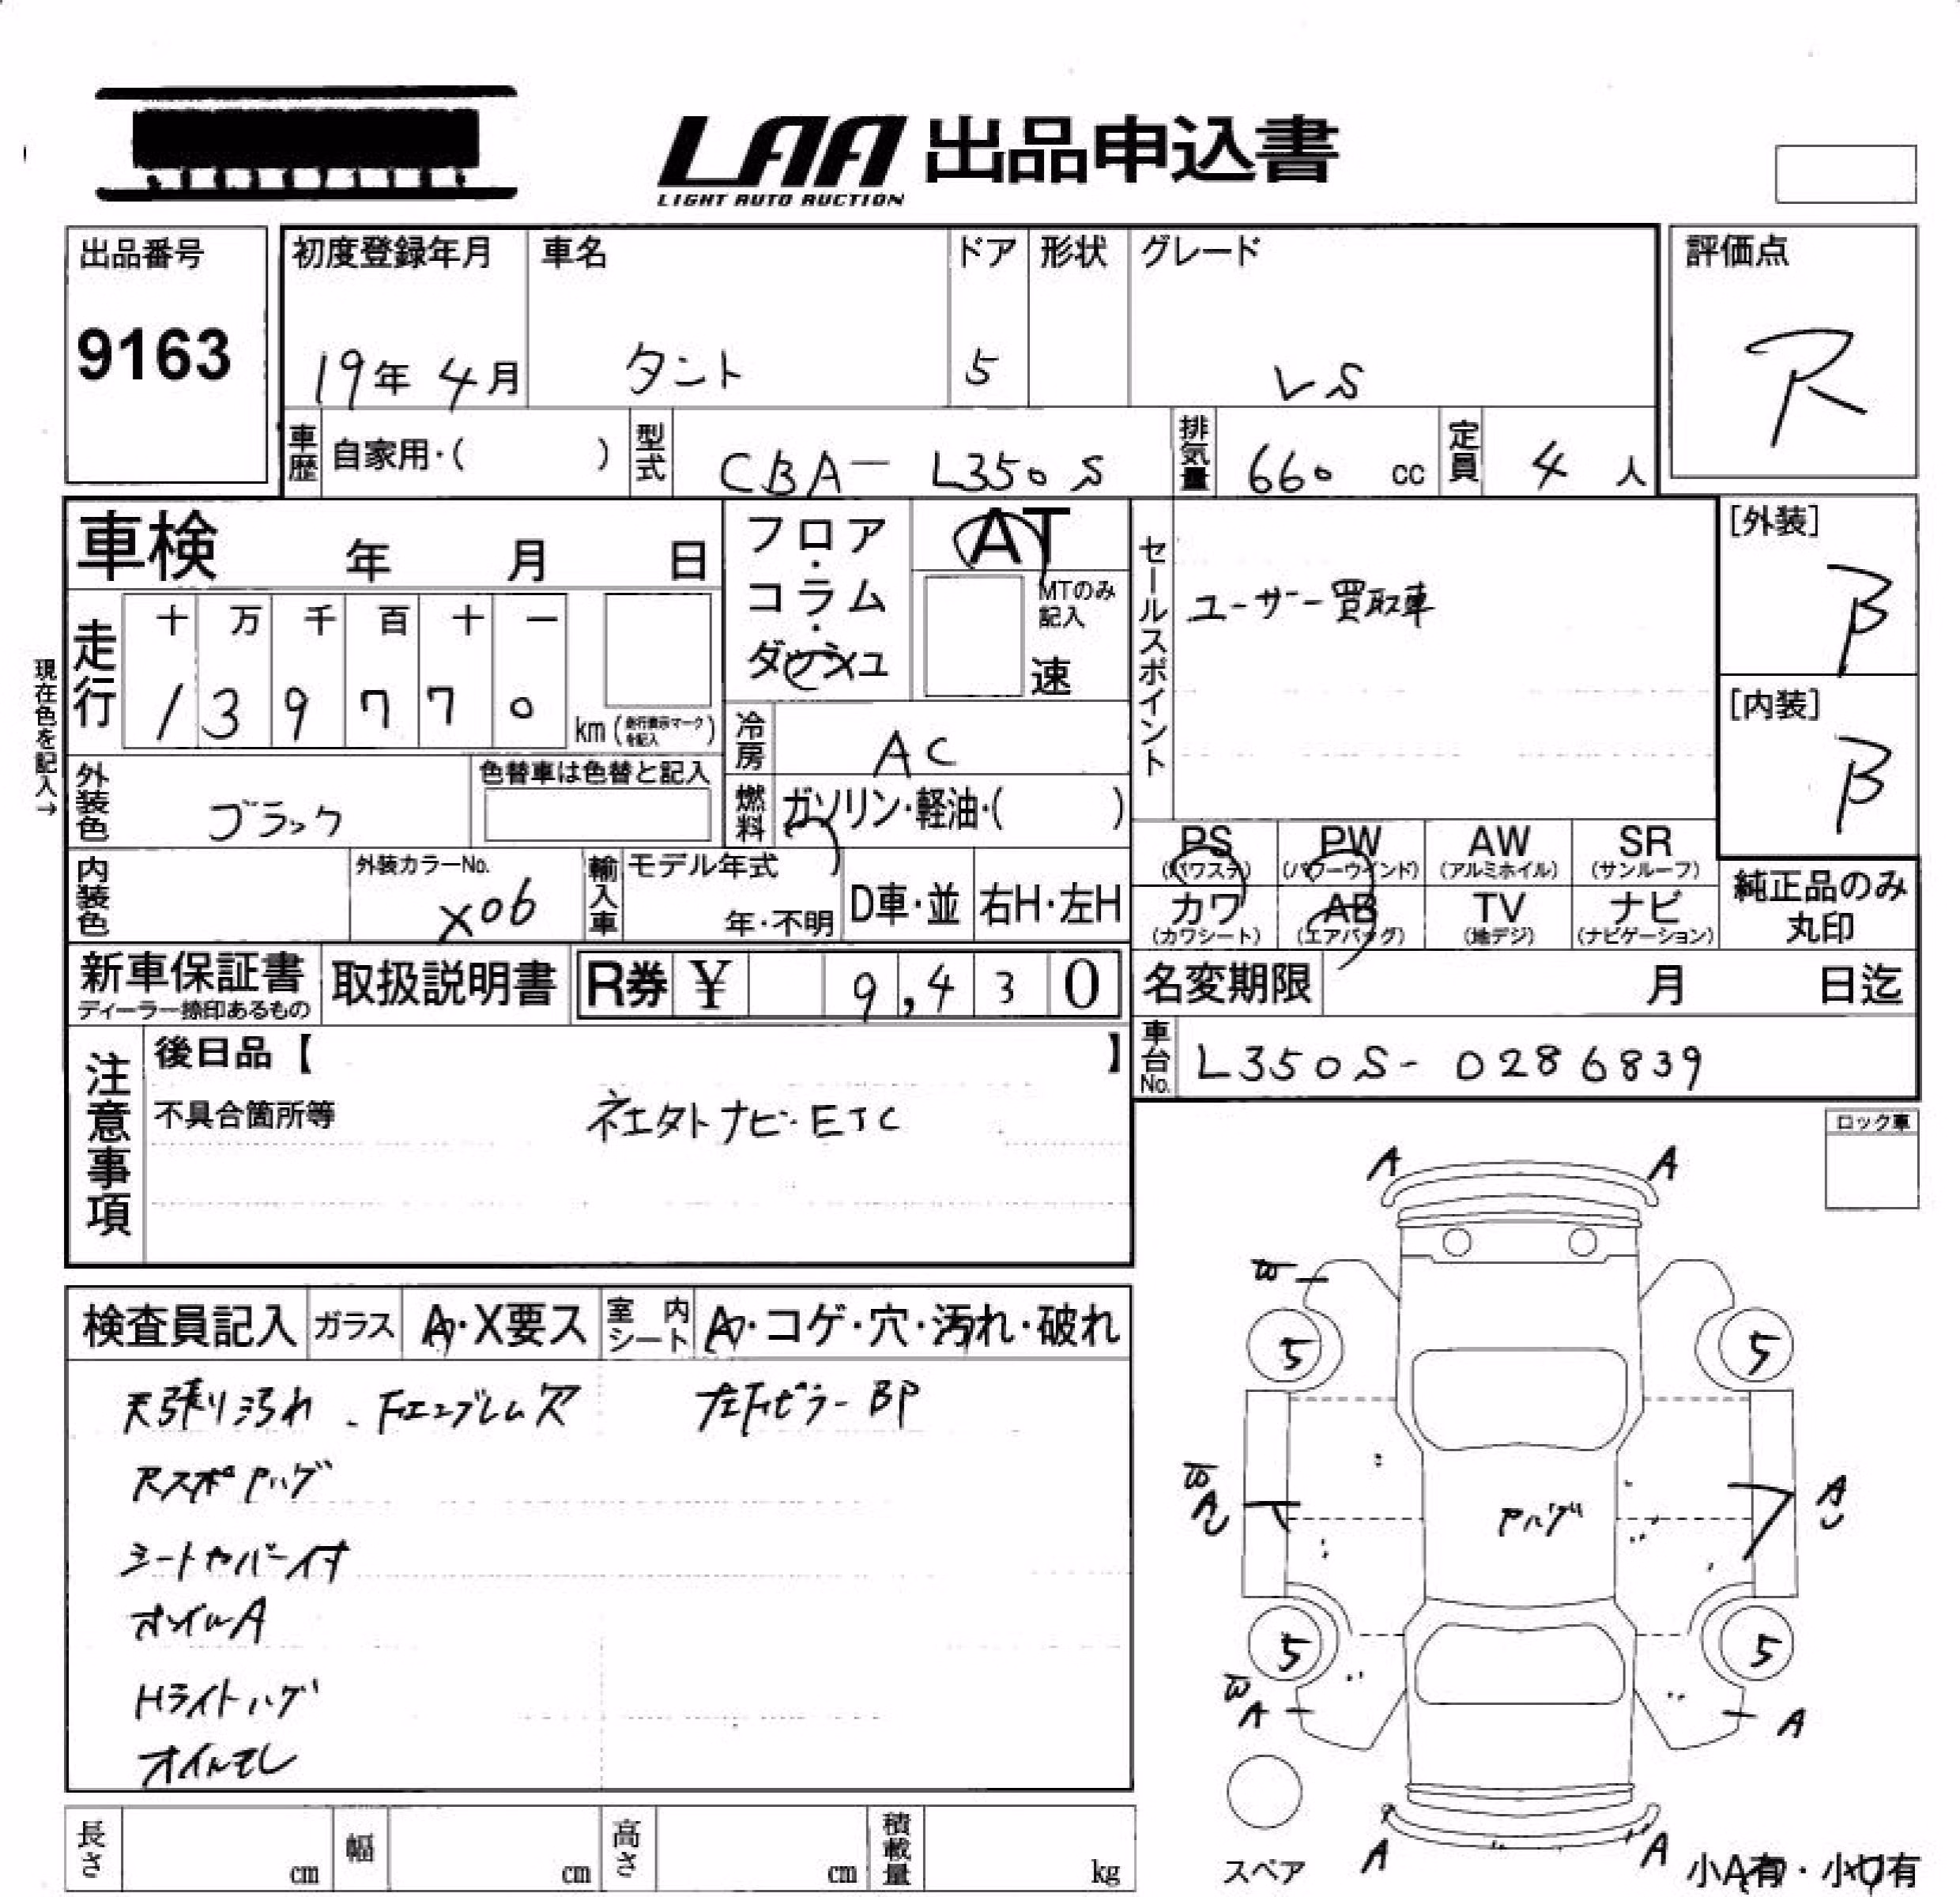 LAA 出品申込書
LIGHT AUTO AUCTION
出品番号
9163
初度登録年月 車名 ドア 形状 グレード
19年 4月 タント 5 LS
評価点
R
車歴 自家用・( ) 型式 CBA-L350S 排気量 660 cc 定員 4 人
車検 年 月 日
フロア・コラム・ダッシュ
AT
MTのみ記入
速
セールスポイント
ユーザー買取車
[外装]
B
[内装]
B
現在色を記入→
走行
十 万 千 百 十 一
1 3 9 7 7 0
km (走行表示マークを記入)
冷房 AC
外装色 ブラック
色替車は色替と記入
燃料 ガソリン・軽油・( )
内装色
外装カラーNo.
X06
輸入車 モデル年式
年・不明
D車・並 右H・左H
PS (パワステ) PW (パワーウインド) AW (アルミホイル) SR (サンルーフ)
カワ (カワシート) AB (エアバッグ) TV (地デジ) ナビ (ナビゲーション)
純正品のみ丸印
新車保証書
ディーラー捺印あるもの
取扱説明書
R券 ¥ 9,430
名変期限 月 日迄
車台No. L350S-0286839
注意事項
後日品【 】
不具合箇所等
社外ナビ・ETC
ロック車
検査員記入 ガラス A・X要ス 室内シート A・コゲ・穴・汚れ・破れ
天張り汚れ . Fエンブレム欠 左Fピラー BP
Rスポ Pハゲ
シートカバー付
オイルA
Hライトハゲ
オイルモレ
A A
W
5 5
W
AU
AU
Pハゲ
5 5
W
A A
スペア
A A
小A有・小U有
長さ cm 幅 cm 高さ cm 積載量 kg